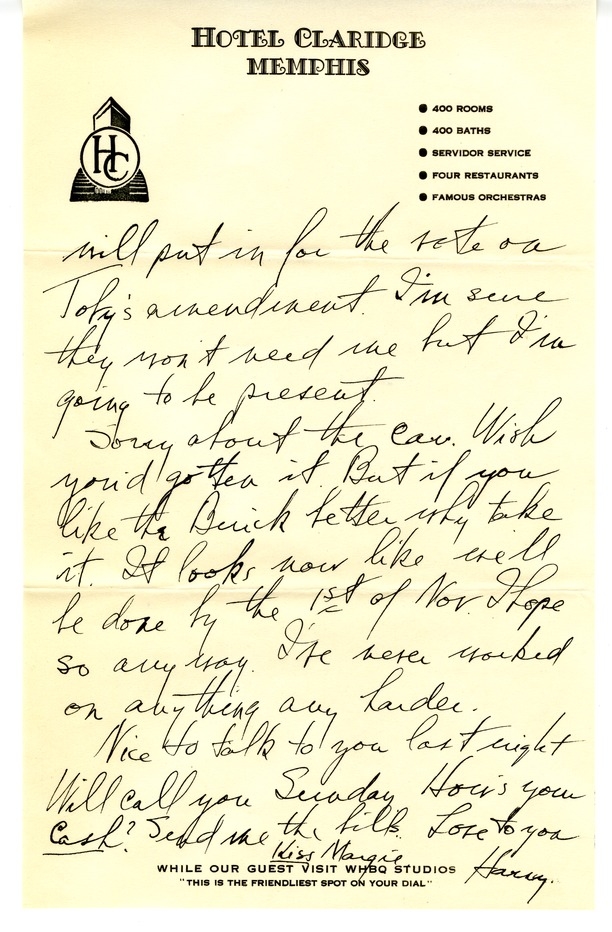 HOTEL CLARIDGE
MEMPHIS
HC
● 400 ROOMS
● 400 BATHS
● SERVIDOR SERVICE
● FOUR RESTAURANTS
● FAMOUS ORCHESTRAS
will put in for the vote on
Toby's amendment. I'm sure
they won't need me but I'm
going to be present.
Sorry about the car. Wish
you'd gotten it. But if you
like the Buick better why take
it. It looks now like we'll
be done by the 1st of Nov. I hope
so anyway. I've never worked
on anything any harder.
Nice to talk to you last night
Will call you Sunday. How's your
Cash? Send me the bills. Love to you
Kiss Margie
Harry.
WHILE OUR GUEST VISIT WHBQ STUDIOS
"THIS IS THE FRIENDLIEST SPOT ON YOUR DIAL"